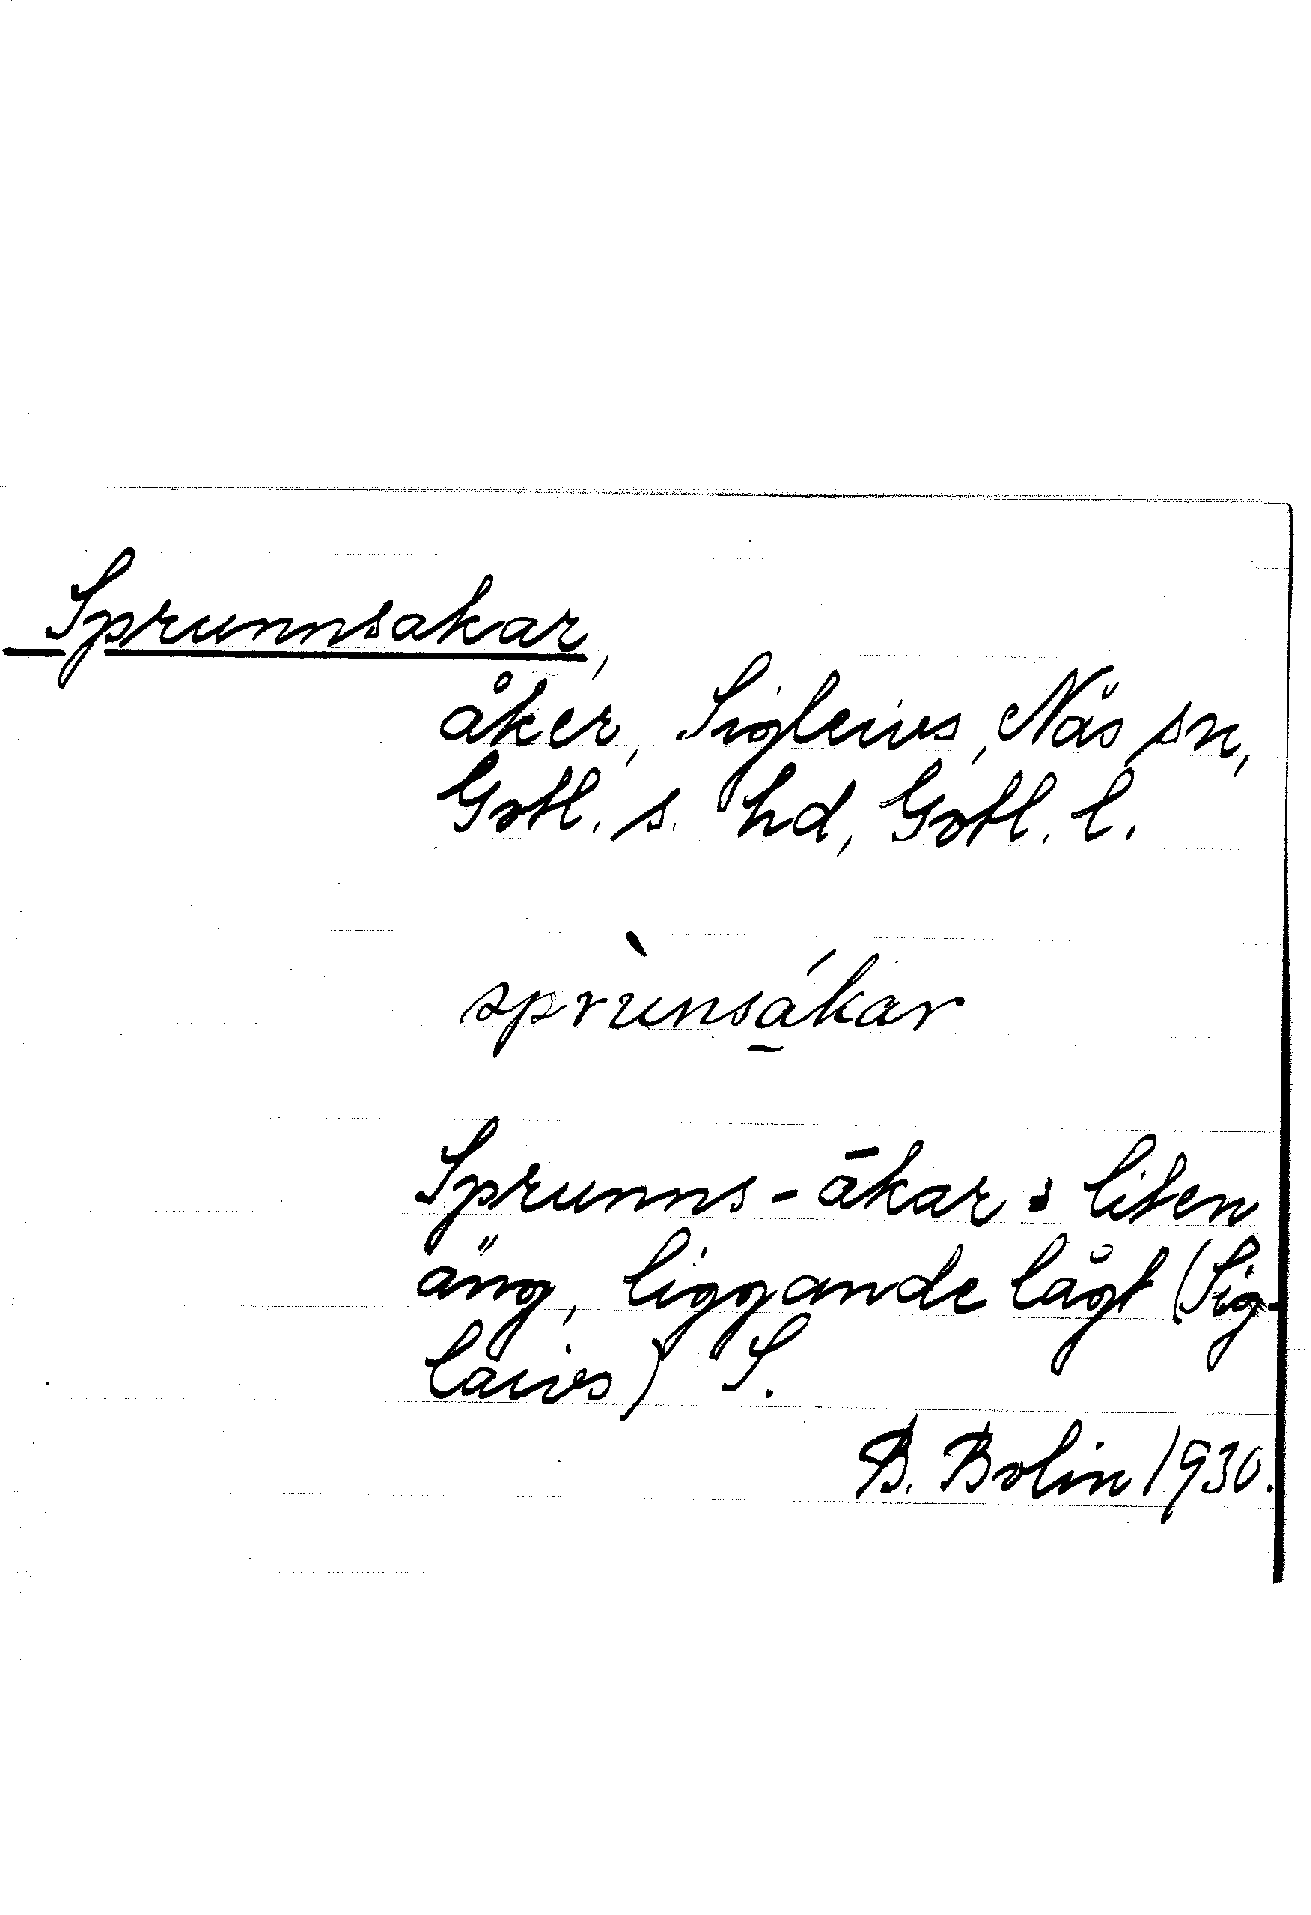 Sprunnsakar,
åker, Sigleivs, Näs sn,
Gotl. s. hd, Gotl. l.
sprùnsá̱kar
Sprunns-ākar: liten
äng, liggande lågt (Sig-
laivs) S.
B. Bolin 1930.